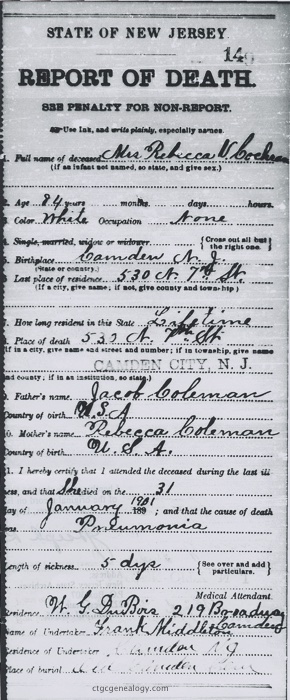 STATE OF NEW JERSEY.
14
REPORT OF DEATH.
SEE PENALTY FOR NON-REPORT.
Use Ink, and write plainly, especially names.
1. Full name of deceased Mrs Rebecca V. Cochran
(If an infant not named, so state, and give sex.)
2. Age 84 years months days hours.
3. Color White Occupation None
4. Single, married, widow or widower. {Cross out all but the right one.}
5. Birthplace Camden N. J.
(State or country.)
Last place of residence 530 N. 7th St.
(If a city, give name; if not, give county and township)
7. How long resident in this State Lifetime
8. Place of death 530 N. 7th St
(If in city, give name and street and number; if in township, give name
CAMDEN CITY, N. J.
and county; if in an institution, so state.)
9. Father's name Jacob Coleman
Country of birth U.S.A
10. Mother's name Rebecca Coleman
Country of birth U. S. A.
11. I hereby certify that I attended the deceased during the last ill
ness, and that She died on the 31
day of January 1901 189 ; and that the cause of death
was Pneumonia
Length of sickness 5 dys {See over and add particulars.
Medical Attendant.
Residence W. G. DuBois 219 Broadway
Camden
Name of Undertaker Frank Middleton
Residence of Undertaker Camden N J
Place of burial Camden
ctgcgenealogy.com